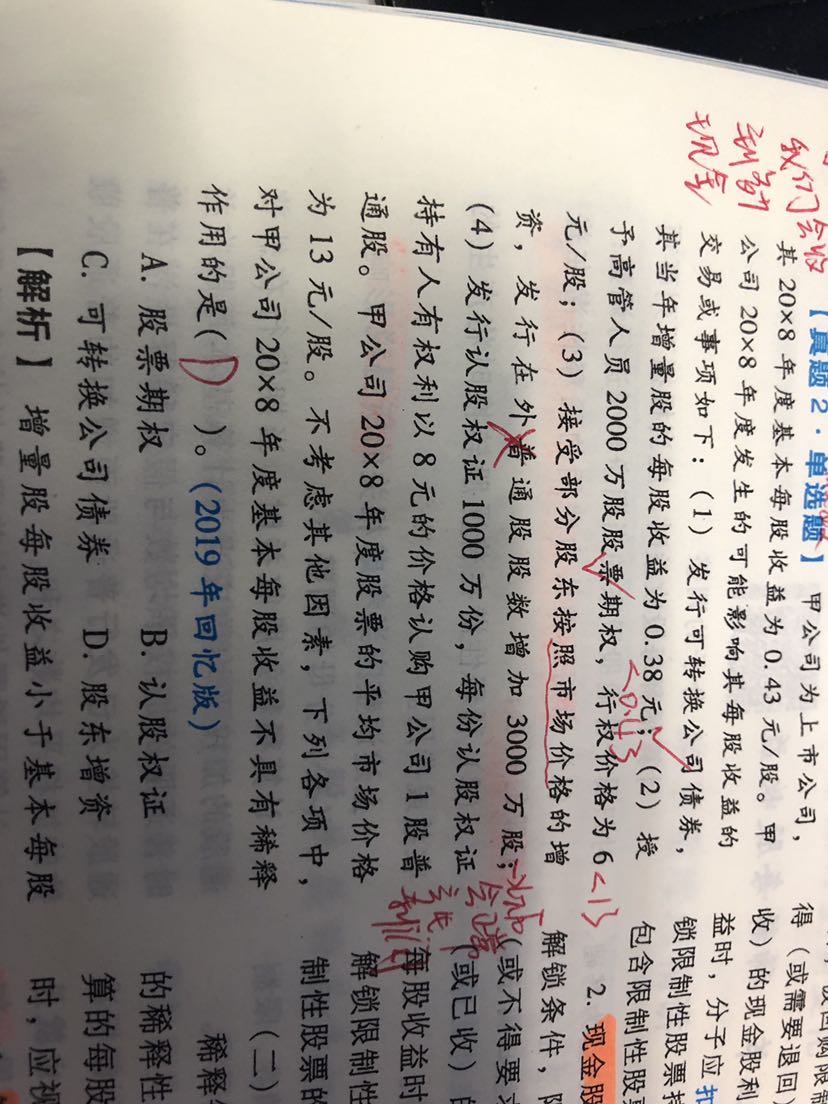 【真题2·单选题】 甲公司为上市公司，
其20×8年度基本每股收益为0.43元/股。甲
公司20×8年度发生的可能影响其每股收益的
交易或事项如下：（1）发行可转换公司债券，
其当年增量股的每股收益为0.38元；（2）授
予高管人员2000万股股票期权，行权价格为6
元/股；（3）接受部分股东按照市场价格的增
资，发行在外普通股股数增加3000万股；
（4）发行认股权证1000万份，每份认股权证
持有人有权利以8元的价格认购甲公司1股普
通股。甲公司20×8年度股票的平均市场价格
为13元/股。不考虑其他因素，下列各项中，
对甲公司20×8年度基本每股收益不具有稀释
作用的是（D）。（2019年回忆版）
A. 股票期权 B. 认股权证
C. 可转换公司债券 D. 股东增资
【解析】 增量股每股收益小于基本每股
我们会收
到
现金
<0.43
<13
得（或需要退回）
收）的现金股利
益时，分子应扣
锁限制性股票
包含限制性股
2. 现金股
解锁条件，
（或不得要
（或已收）
每股收益时
解锁限制性
制性股票的
（二）
稀释
的稀释性
算的每股
时，应视